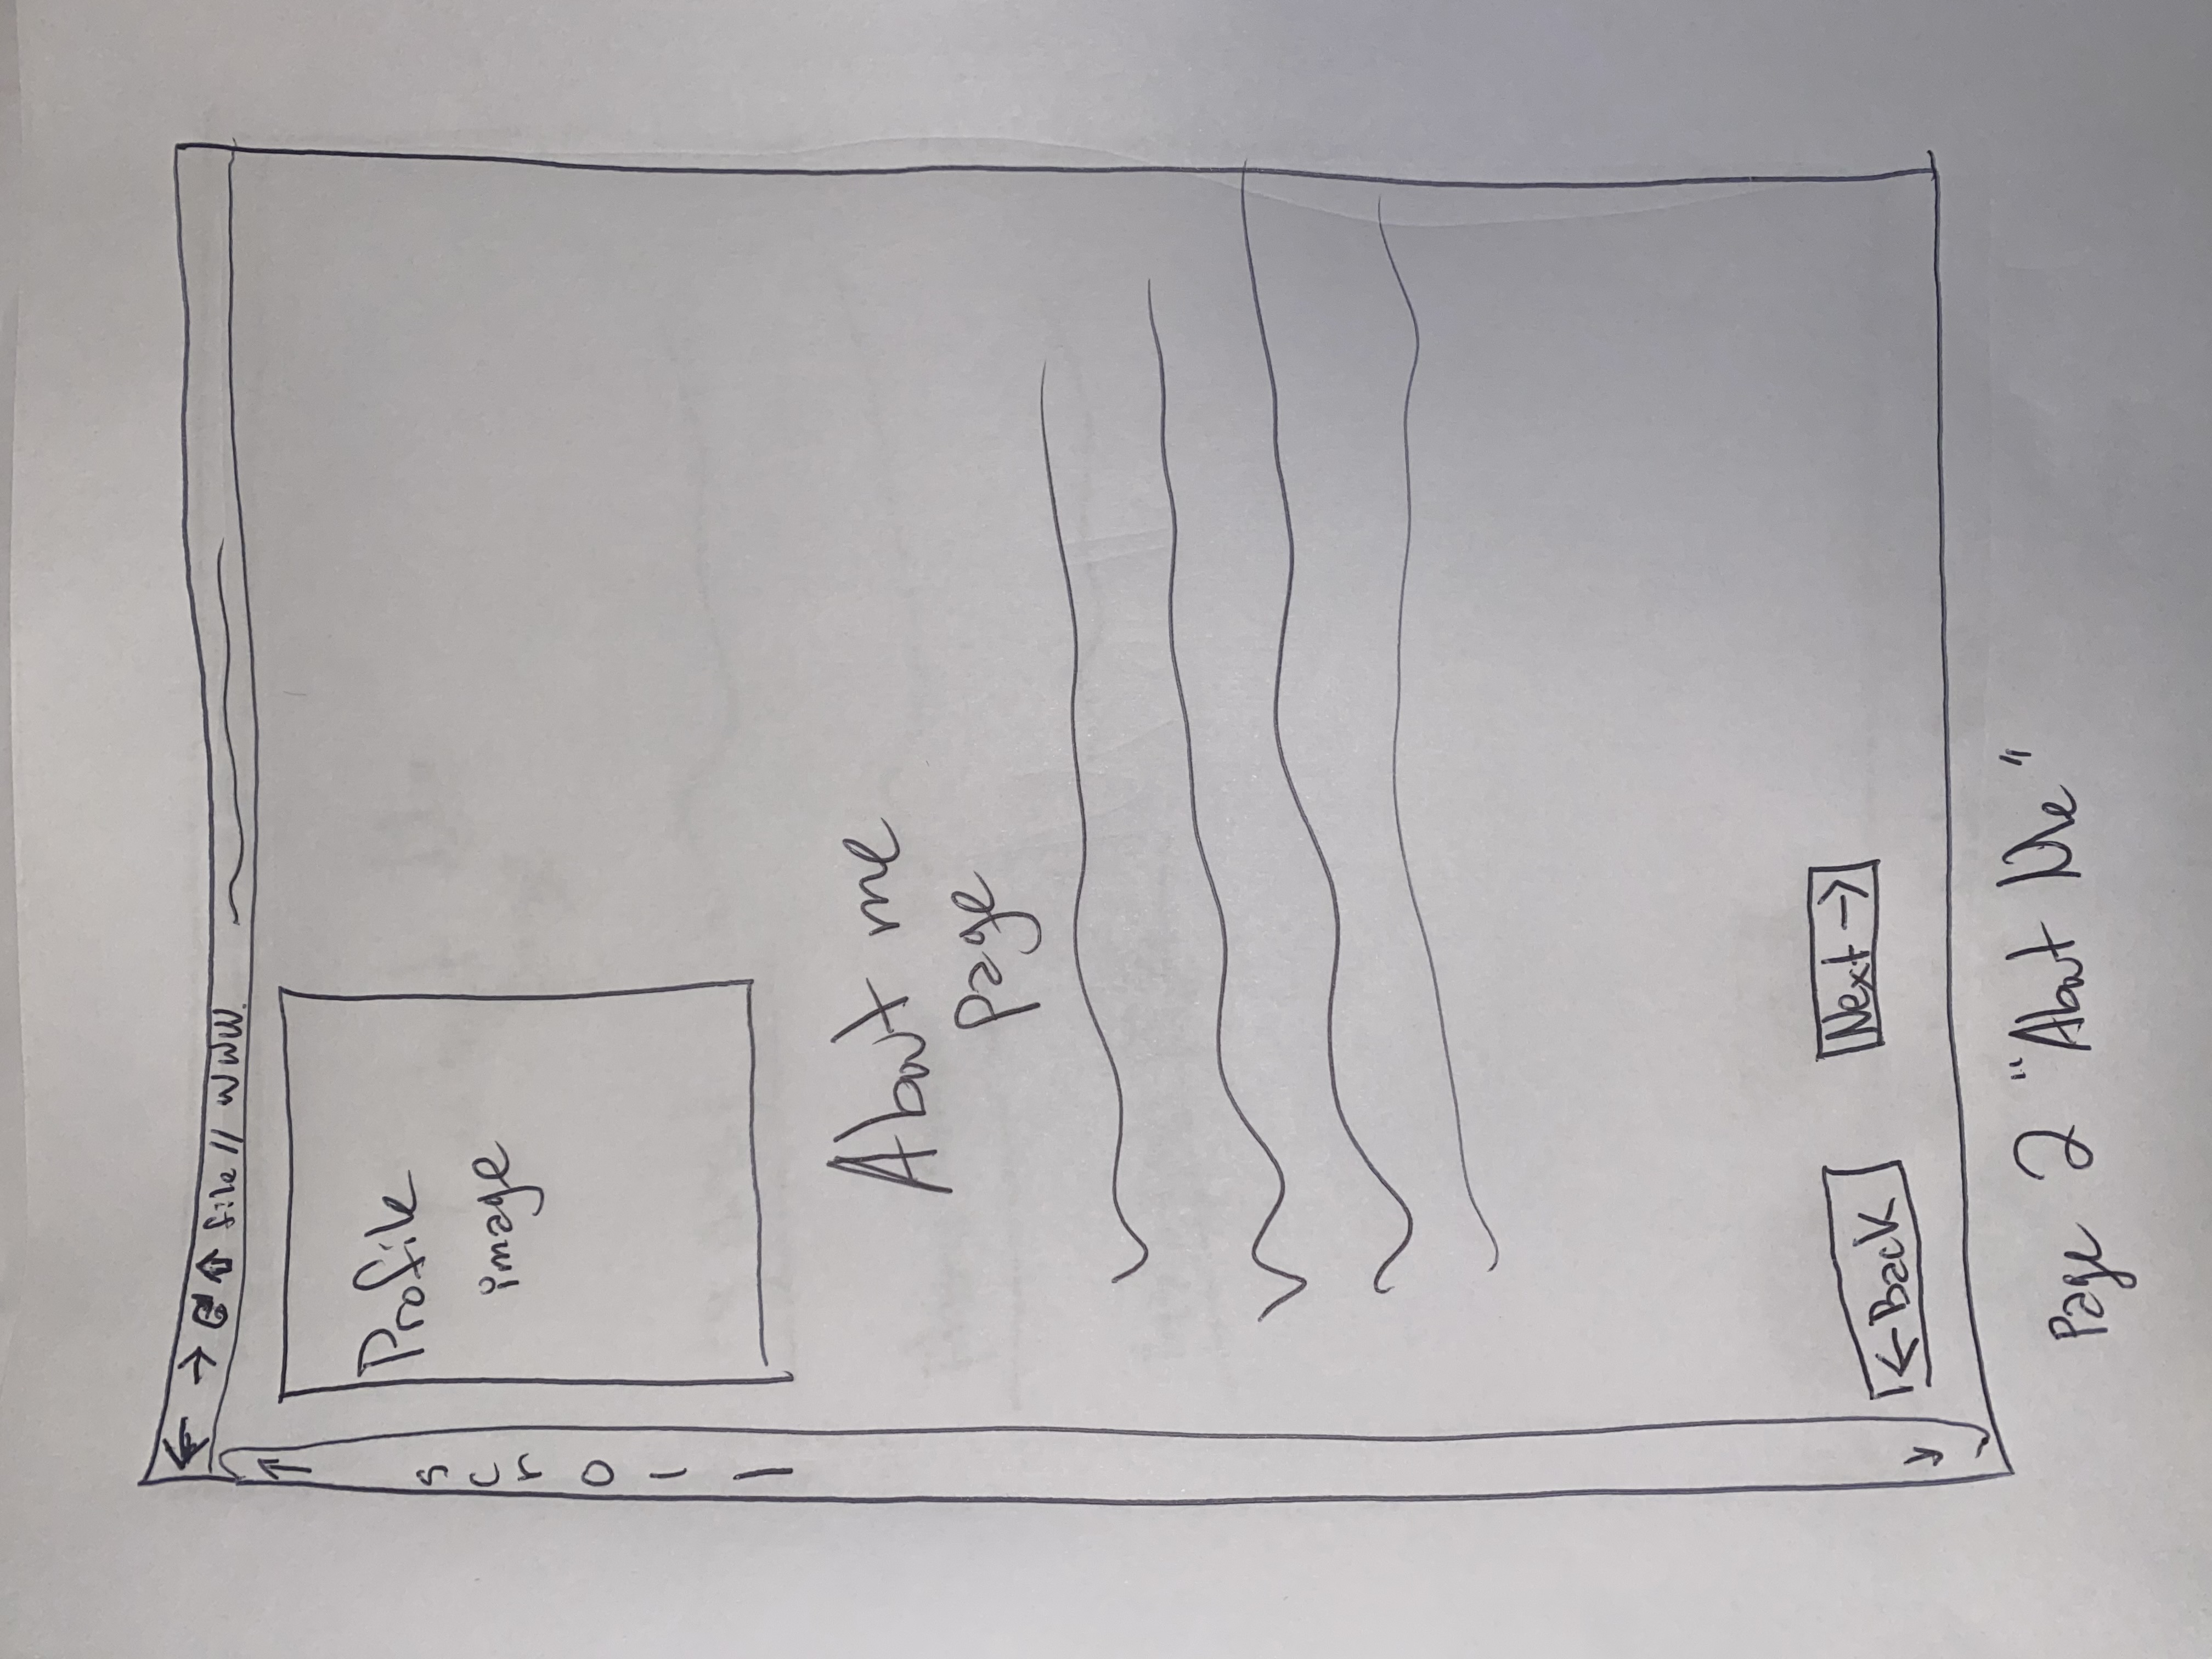 ← → file // www.
↑
scroll
↓
Profile
image
About me
page
← Back
Next →
Page 2 "About Me"